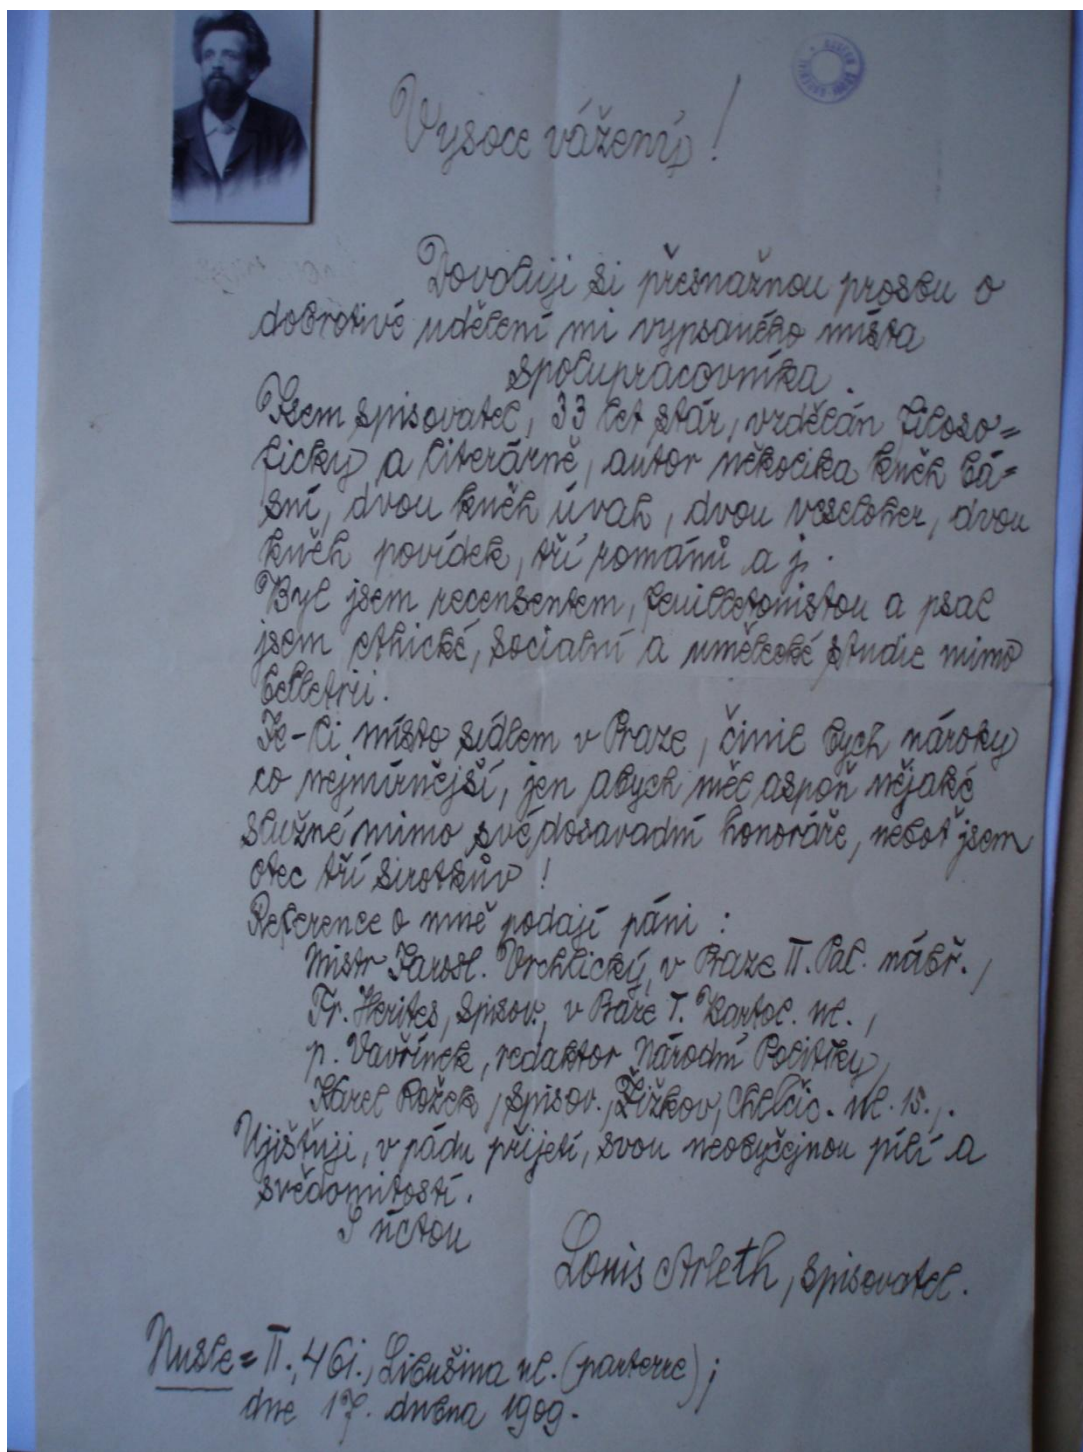 Vysoce vážený!
Dovoluji si přesnažnou prosbu o
dobrotivé udělení mi vypsaného místa
spolupracovníka.
Jsem spisovatel, 33 let stár, vzdělán filoso=
ficky a literárně, autor několika kněh bá=
sní, dvou kněh úvah, dvou veseloher, dvou
kněh povídek, tří románů a j.
Byl jsem recensentem, feuilletonistou a psal
jsem ethické, sociální a umělecké studie mimo
belletrii.
Je-li místo sídlem v Praze, činil bych nároky
co nejmírnější, jen abych měl aspoň nějaké
služné mimo své dosavadní honoráře, neboť jsem
otec tří sirotkův!
Reference o mně podají páni:
Mistr Jarosl. Vrchlický, v Praze II. Pal. nábř.,
Fr. Herites, spisov., v Praze I. Bartol. ul.,
p. Vavřínek, redaktor Národní Politiky,
Karel Rožek, spisov., Žižkov, Chelčic. ul. 15.,.
Ujišťuji, v pádu přijetí, svou neobyčejnou pílí a
svědomitostí.
S úctou
Louis Arleth, spisovatel.
Nusle=II., 461., Libušina ul. (parterre);
dne 17. dubna 1909.